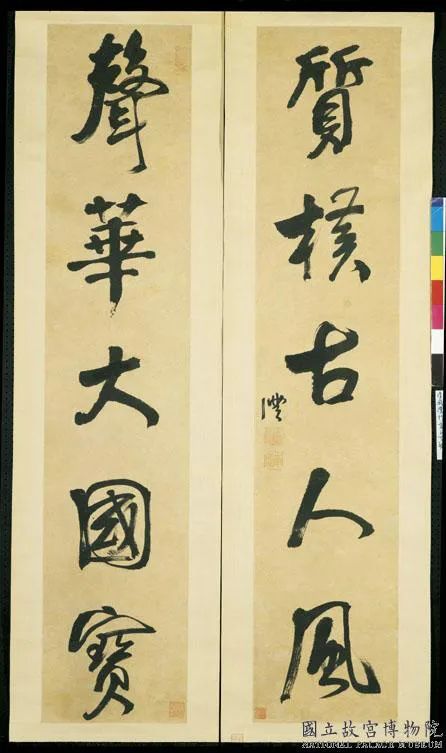 質樸古人風
聲華大國寶
國立故宮博物院
NATIONAL PALACE MUSEUM